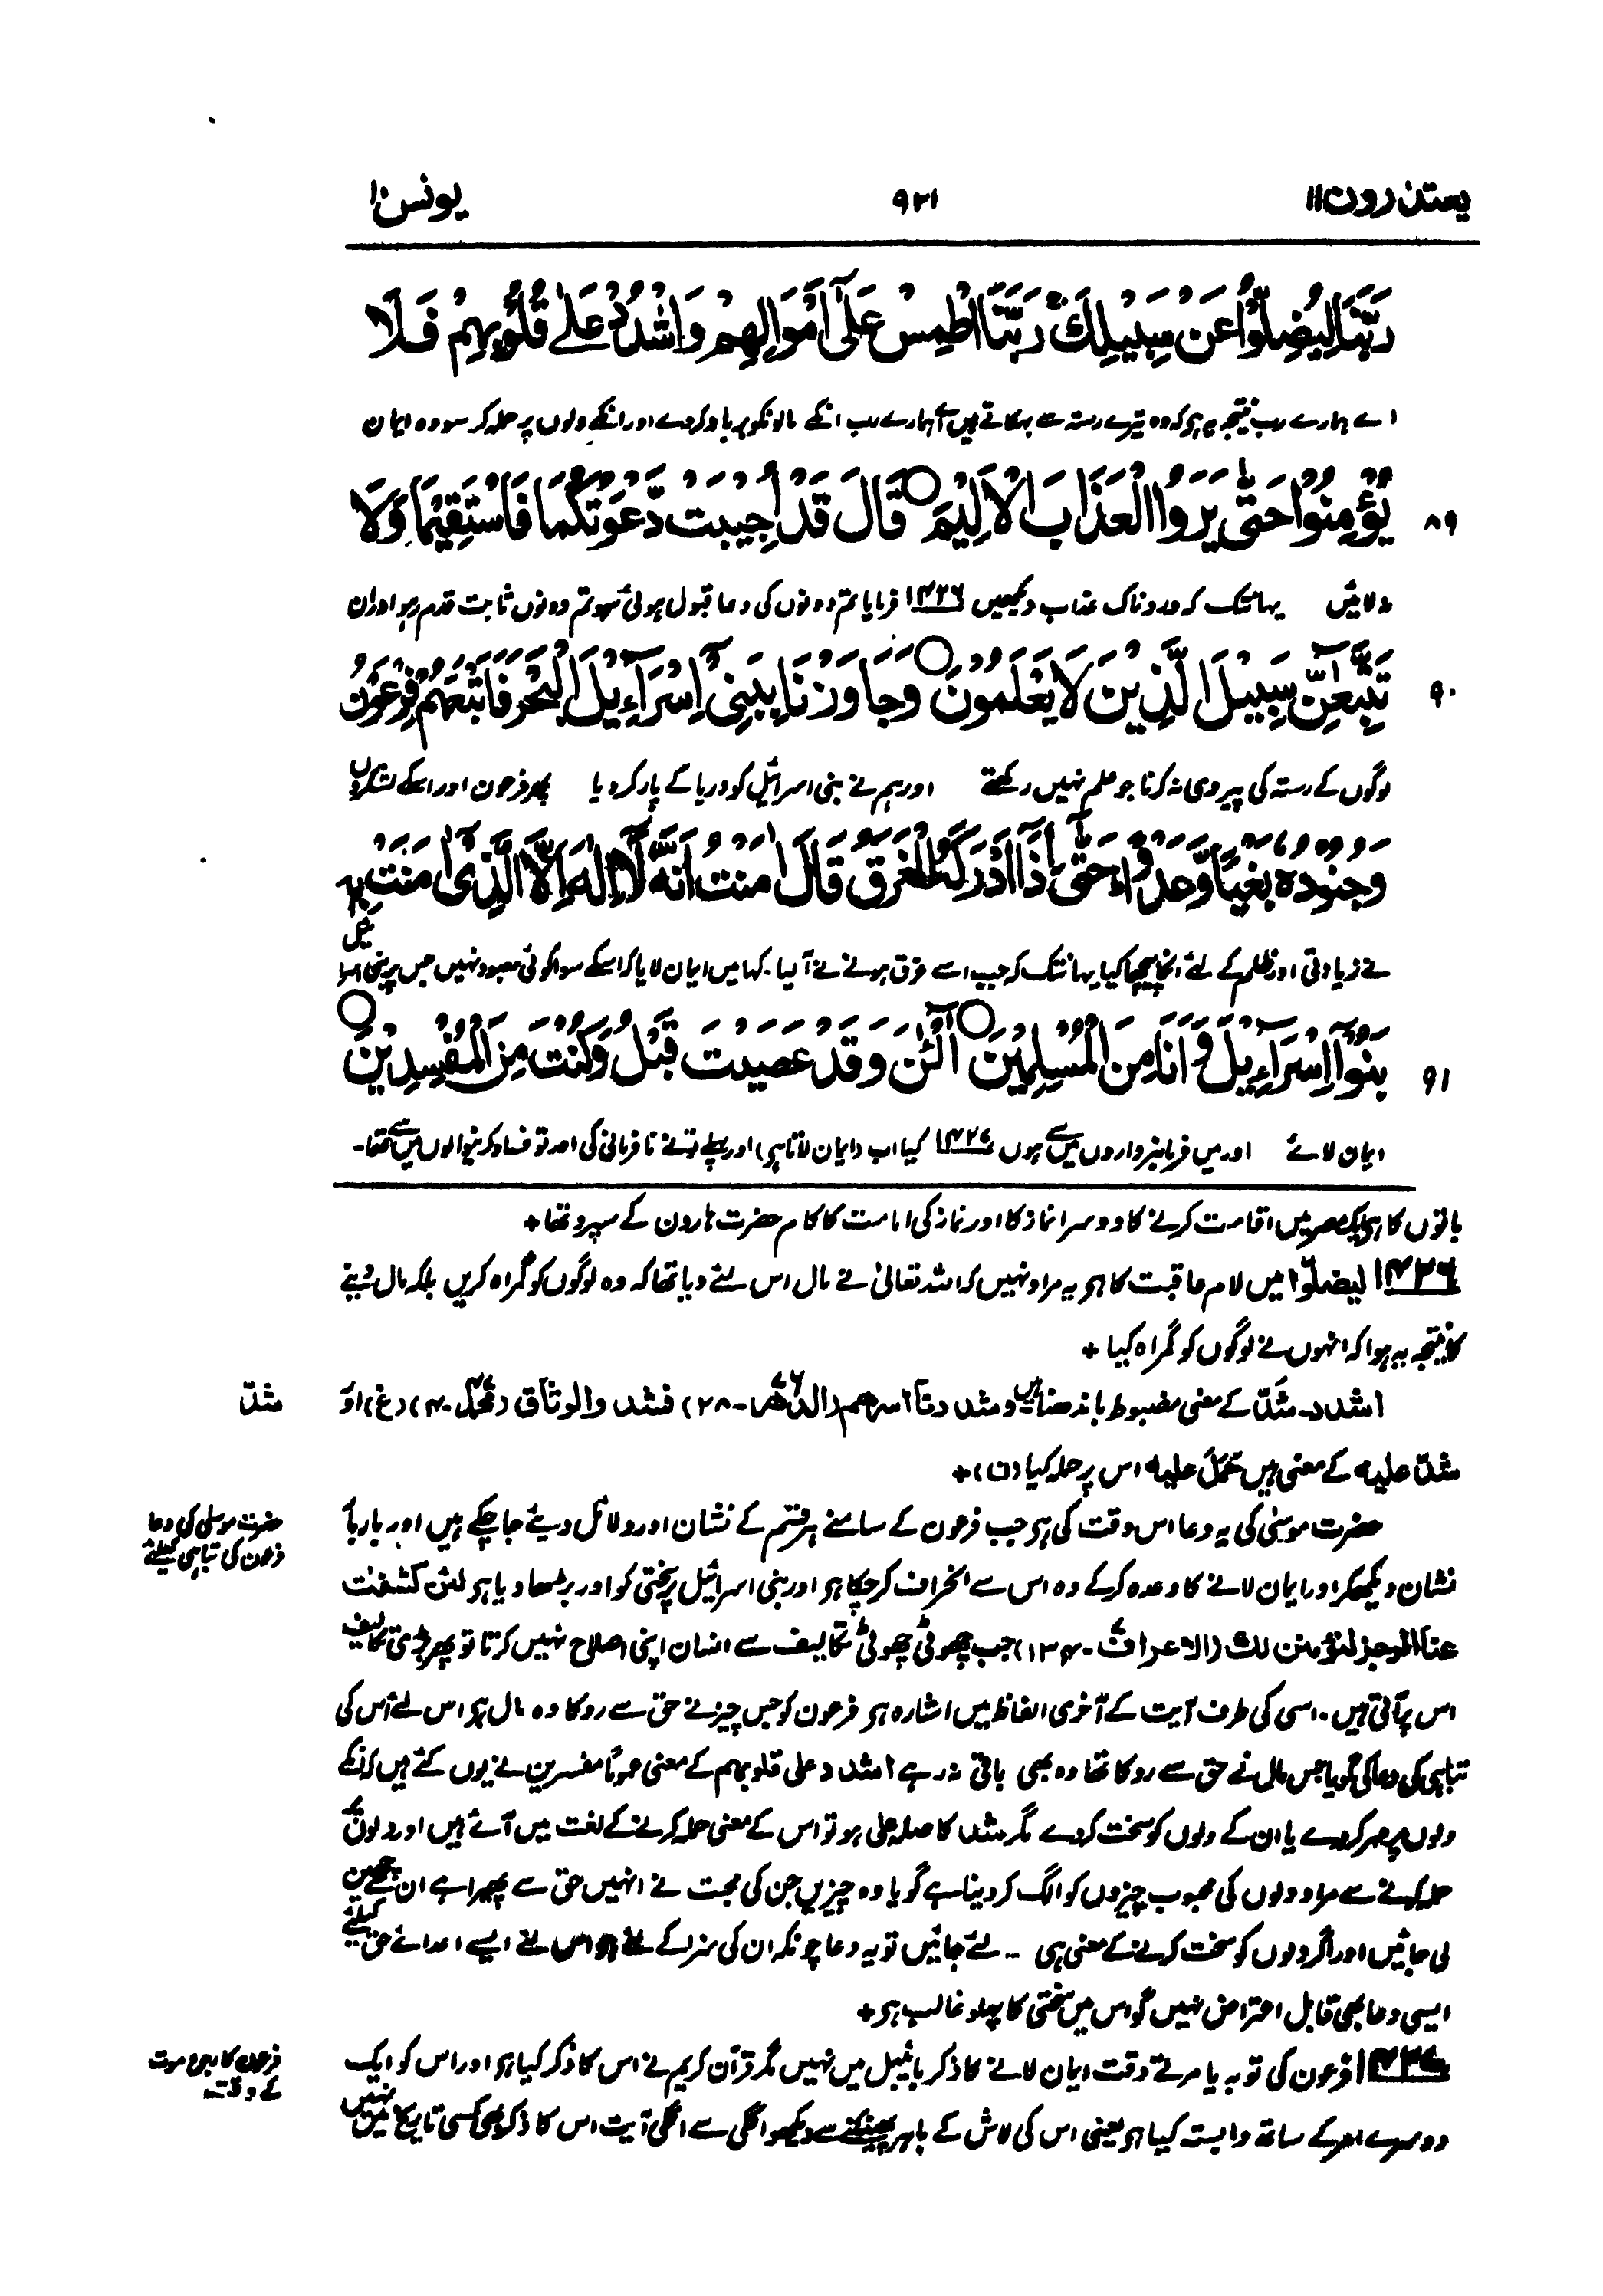 یعتذرون۱۱
۹۲۱
یونس۱۰
رَبَّنَا لِيُضِلُّوْا عَنْ سَبِيْلِكَ ۚ رَبَّنَا اطْمِسْ عَلٰٓى اَمْوَالِهِمْ وَاشْدُدْ عَلٰى قُلُوْبِهِمْ فَلَا
اے ہمارے رب نتیجہ یہ ہی کہ وہ تیرے رستہ سے بہکاتے ہیں اے ہمارے رب انکے مالونکو برباد کردے اور انکے دلوں پر حملہ کر سو وہ ایمان
۸۹
يُؤْمِنُوْا حَتّٰى يَرَوُا الْعَذَابَ الْاَلِيْمَ ○ قَالَ قَدْ اُجِيْبَتْ دَّعْوَتُكُمَا فَاسْتَقِيْمَا وَلَا
نہ لائیں یہانتک کہ دردناک عذاب دیکھیں ۱۴۳۶ فرمایا تم دونوں کی دعا قبول ہوئی سو تم دونوں ثابت قدم رہو اور ان
۹۰
تَتَّبِعٰٓنِّ سَبِيْلَ الَّذِيْنَ لَا يَعْلَمُوْنَ ○ وَجَاوَزْنَا بِبَنِيْٓ اِسْرَآءِيْلَ الْبَحْرَ فَاَتْبَعَهُمْ فِرْعَوْنُ
لوگوں کے رستہ کی پیروی نہ کرنا جو علم نہیں رکھتے اور ہم نے بنی اسرائیل کو دریا کے پار کردیا پھر فرعون اور اسکے لشکروں
وَجُنُوْدُهٗ بَغْيًا وَّعَدْوًا ؕ حَتّٰٓى اِذَآ اَدْرَكَهُ الْغَرَقُ قَالَ اٰمَنْتُ اَنَّهٗ لَآ اِلٰهَ اِلَّا الَّذِيْٓ اٰمَنَتْ بِهٖ
نے زیادتی اور ظلم کے لئے انکا پیچھا کیا یہانتک کہ جب اسے غرق ہونے نے آلیا۔ کہا میں ایمان لایا کہ اسکے سوا کوئی معبود نہیں جس پر بنی اسرائیل
۹۱
بَنُوْٓا اِسْرَآءِيْلَ وَ اَنَا مِنَ الْمُسْلِمِيْنَ ○ آٰلْـٰٔنَ وَ قَدْ عَصَيْتَ قَبْلُ وَكُنْتَ مِنَ الْمُفْسِدِيْنَ ○
ایمان لائے اور میں فرمانبرداروں میں سے ہوں ۱۴۳۷ کیا اب (ایمان لاتا ہی) اور پہلے تونے نافرمانی کی اور تو فساد کرنیوالوں میں سے تھا۔
باتوں کا ہی ایک مصر میں اقامت کرنے کا دوسرا نماز کا اور نماز کی امامت کا کام حضرت ہارون کے سپرد تھا +
۱۴۳۶ لیضلوا میں لام عاقبت کا ہی یہ مراد نہیں کہ اللہ تعالیٰ نے مال اس لئے دیا تھا کہ وہ لوگوں کو گمراہ کریں بلکہ مال دینے
کا نتیجہ یہ ہوا کہ انہوں نے لوگوں کو گمراہ کیا +
اشدد۔ شَدّ کے معنی مضبوط باندھنا ہیں وشددنا اسرھم (الدھر ۷۶-۲۸) فشدوا الوثاق (محمد ۴۷-۴) (غ) اور
شدّ
شدّ علیہ کے معنی ہیں حَمَلَ علیہ اس پر حملہ کیا (ن) +
حضرت موسیٰ کی یہ دعا اس وقت کی ہی جب فرعون کے سامنے ہر قسم کے نشان اور دلائل دیئے جاچکے ہیں اور بارہا
حضرت موسیٰ کی دعا
فرعون کی تباہی کیلئے
نشان دیکھکر اور ایمان لانے کا وعدہ کرکے وہ اس سے انحراف کرچکا ہی اور بنی اسرائیل پر سختی کو اور بڑھا دیا ہی لئن کشفت
عنا الرجز لنؤمنن لك (الاعراف ۷-۱۳۴) جب چھوٹی چھوٹی تکالیف سے انسان اپنی اصلاح نہیں کرتا تو پھر بڑی تکالیف
اس پر آتی ہیں۔ اسی کی طرف آیت کے آخری الفاظ میں اشارہ ہی فرعون کو جس چیز نے حق سے روکا وہ مال ہی اس لئے اس کی
تباہی کی دعا کی گویا جس مال نے حق سے روکا تھا وہ بھی باقی نہ رہے اشدد علی قلوبہم کے معنی عموماً مفسرین نے یوں کئے ہیں کہ انکے
دلوں پر مہر کردے یا ان کے دلوں کو سخت کردے مگر شد کا صلہ علی ہو تو اس کے معنی حملہ کرنے کے لغت میں آئے ہیں اور دلوں پر
حملہ کرنے سے مراد دلوں کی محبوب چیزوں کو الگ کر دینا ہے گویا وہ چیزیں جن کی محبت نے انہیں حق سے پھیرا ہے ان سے چھین
لی جائیں اور اگر دلوں کو سخت کرنے کے معنی ہی .. لئے جائیں تو یہ دعا چونکہ ان کی سزا کے لئے ہی اس لئے ایسے اعدائے حق کیلئے
ایسی دعا بھی قابل اعتراض نہیں گو اس میں سختی کا پہلو غالب ہی +
۱۴۳۷ فرعون کی توبہ یا مرتے وقت ایمان لانے کا ذکر بائیبل میں نہیں مگر قرآن کریم نے اس کا ذکر کیا ہی اور اس کو ایک
فرعون کا رجوع موت
کے وقت
دوسرے امر کے ساتھ وابستہ کیا ہی یعنی اس کی لاش کے باہر پھینکنے سے دیکھو اگلی سے اگلی آیت اس کا ذکر بھی کسی تاریخ میں نہیں